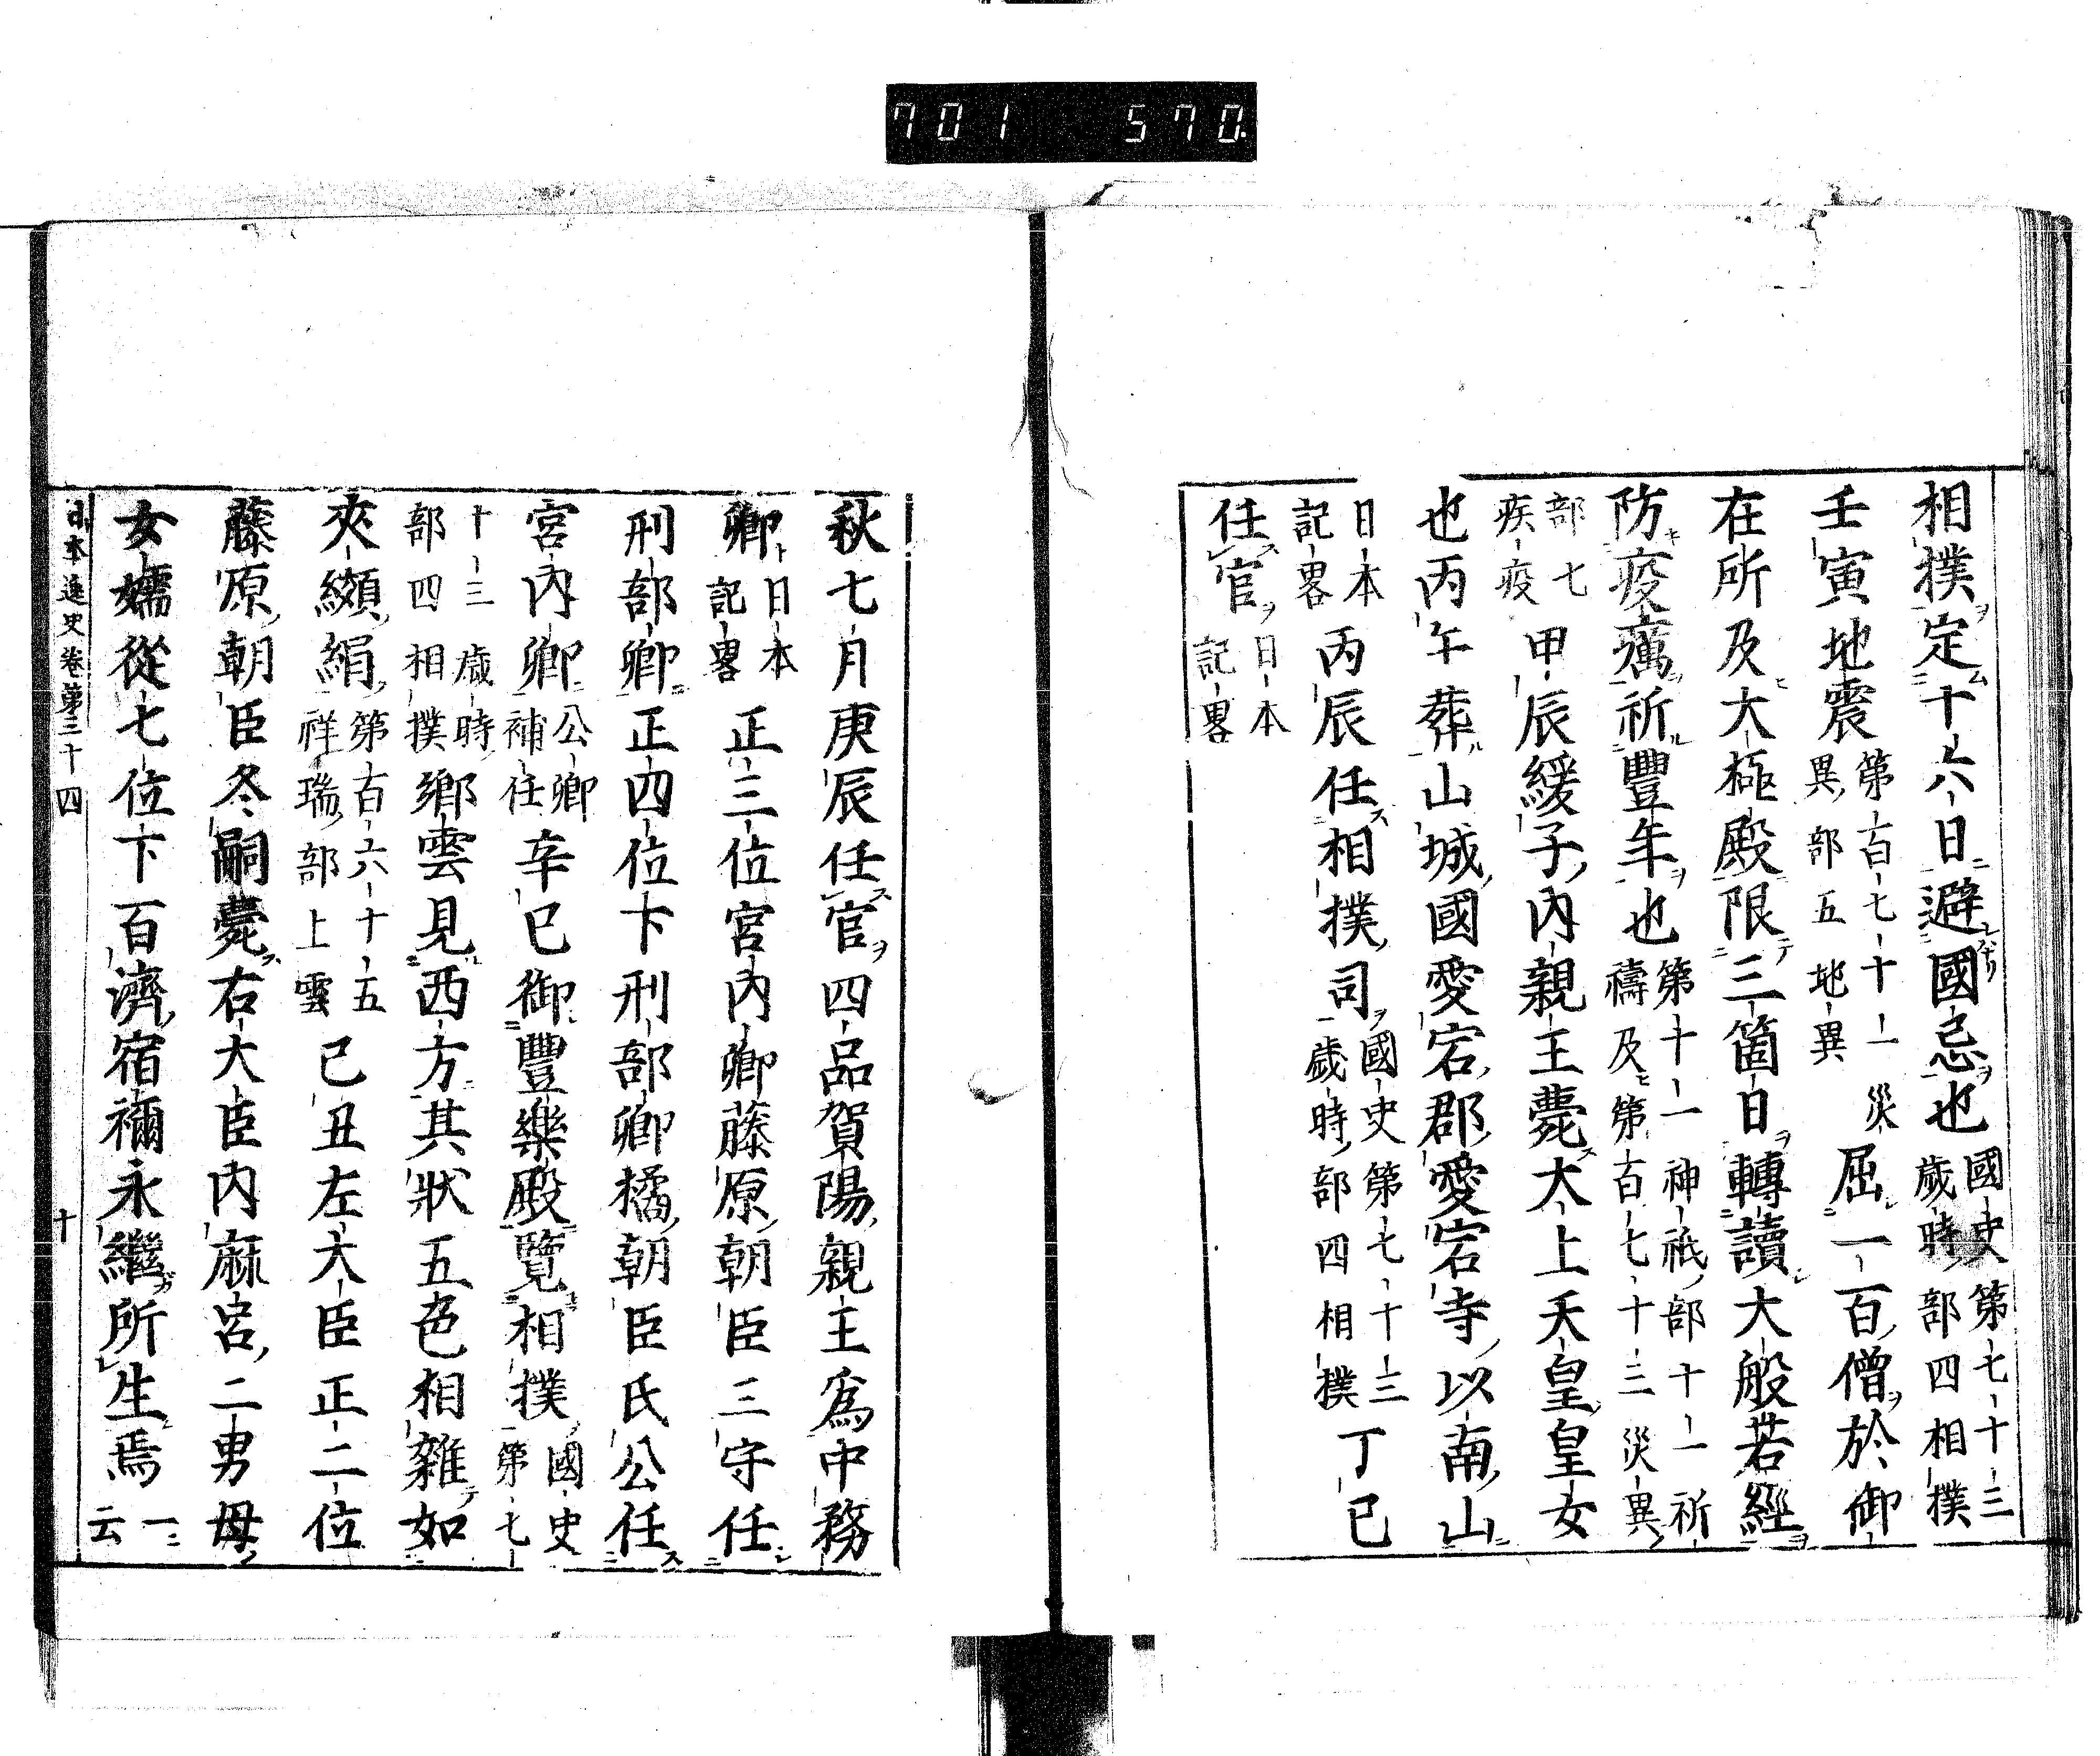 701 570.
相撲定十六日避國忌也國史第七十三歲時部四相撲
壬寅地震第百七十一災異部五地異屈一百僧於御
在所及大極殿限三箇日轉讀大般若經
防疫癘祈豐年也第十一神祇部十一祈禱及第百七十三災異
部七疾疫甲辰緩子内親王薨大上天皇皇女
也丙午葬山城國愛宕郡愛宕寺以南山
日本記畧丙辰任相撲司國史第七十三歲時部四相撲丁巳
任官日本記畧
秋七月庚辰任官四品賀陽親王爲中務
卿日本記畧正三位宮内卿藤原朝臣三守任
刑部卿正四位下刑部卿橘朝臣氏公任
宮内卿公卿補任辛巳御豐樂殿覽相撲國史第七
十三歲時部四相撲鄉雲見西方其狀五色相雜如
夾纈絹第百六十五祥瑞部上雲己丑左大臣正二位
藤原朝臣冬嗣薨右大臣内麻呂二男母
女嬬從七位下百濟宿禰永繼所生焉云云
日本逸史卷第三十四 十